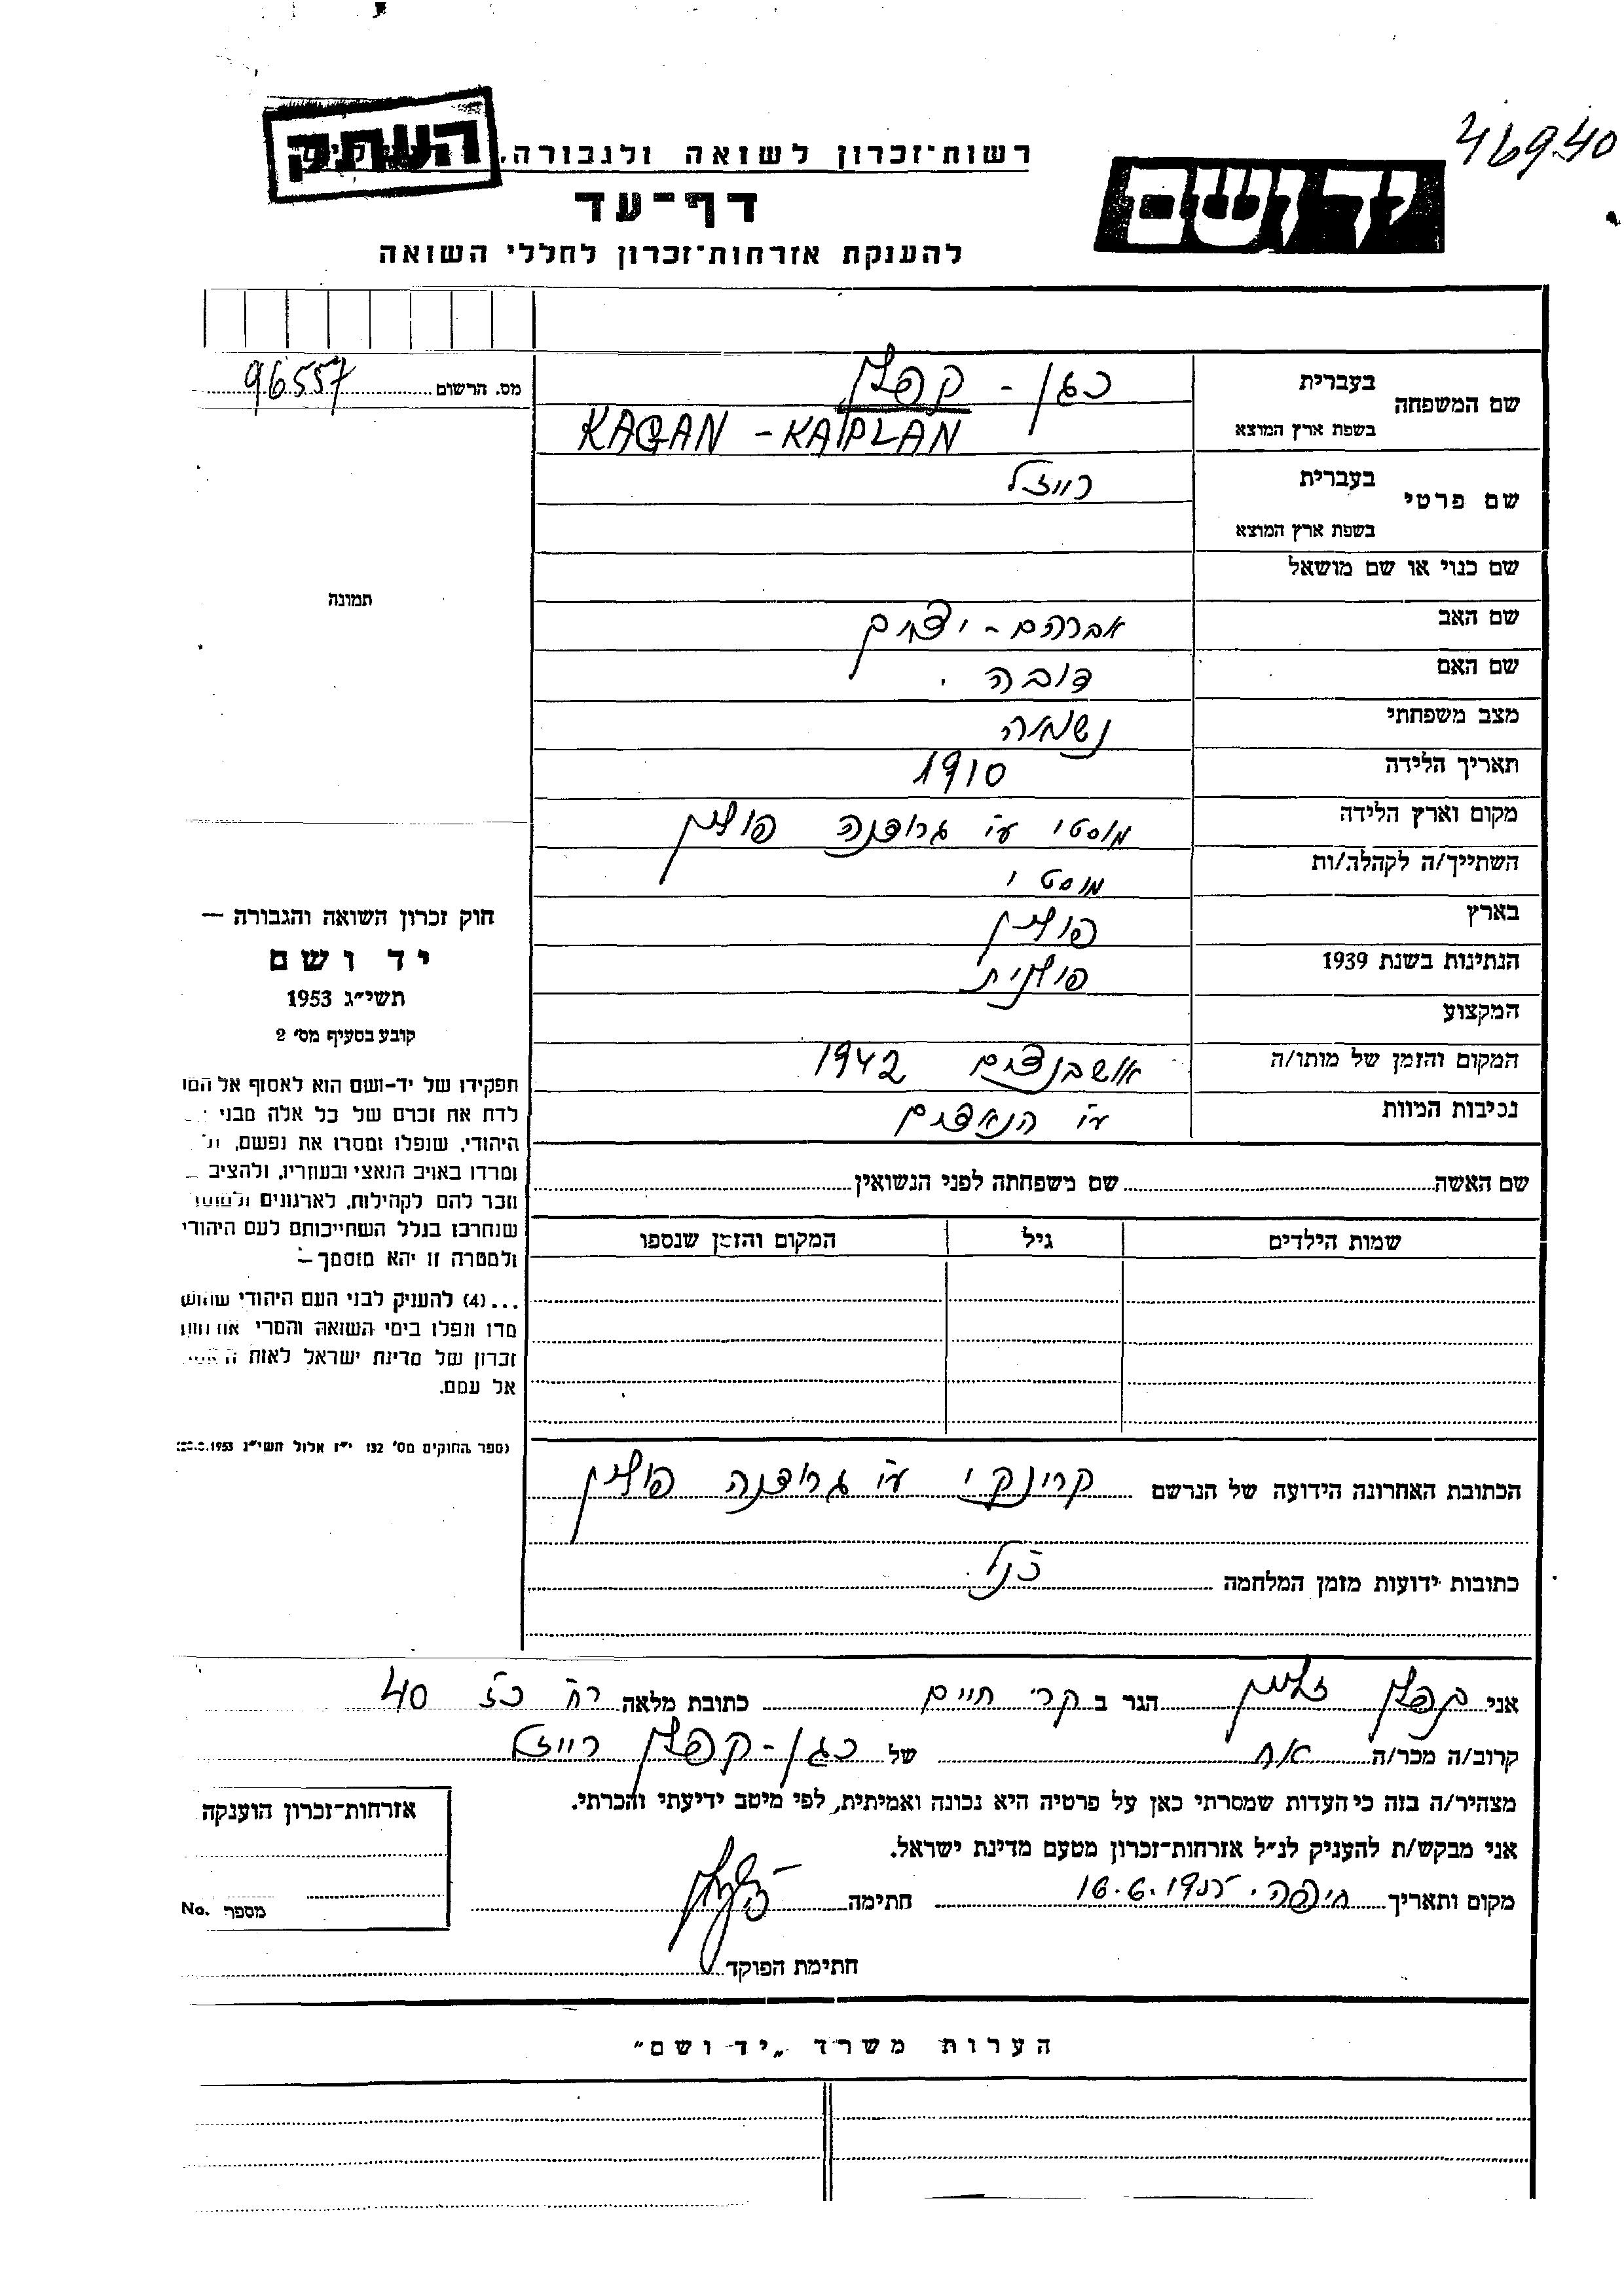 46940
רשות־זכרון לשואה ולגבורה,
העתק
יד ושם
דף־עד
להענקת אזרחות־זכרון לחללי השואה
מס. הרשום 96557
שם המשפחה
בעברית כגן - קפלן
בשפת ארץ המוצא KAGAN - KAPLAN
שם פרטי
בעברית רייזל
בשפת ארץ המוצא
שם כנוי או שם מושאל
תמונה
שם האב אברהם - יצחק
שם האם דובה
מצב משפחתי נשואה
תאריך הלידה 1910
מקום וארץ הלידה מוסטי ע"י גרודנה פולין
השתייך/ה לקהלה/ות מוסטי
בארץ פולין
הנתינות בשנת 1939 פולנית
המקצוע
המקום והזמן של מותו/ה אושבנצים 1942
נסיבות המוות ע"י הנאצים
חוק זכרון השואה והגבורה —
יד ושם
תשי״ג 1953
קובע בסעיף מס׳ 2
תפקידו של יד-ושם הוא לאסוף אל
לדת את זכרם של כל אלה מבני
היהודי, שנפלו ומסרו את נפשם,
ומרדו באויב הנאצי ובעוזריו, ולהציב
וזכר להם לקהילות, לארגונים
שנחרבו בגלל השתייכותם לעם היהודי
ולמטרה זו יהא מוסמך —
...(4) להעניק לבני העם היהודי
מדו ונפלו בימי השואה והמרי
זכרון של מדינת ישראל לאות
אל עמם.
(ספר החוקים מס׳ 132 י״ז אלול תשי״ג 1953
שם האשה שם משפחתה לפני הנשואין
שמות הילדים גיל המקום והזמן שנספו
הכתובת האחרונה הידועה של הנרשם קרינקי ע"י גרודנה פולין
כתובות ידועות מזמן המלחמה כנ"ל
אני קפלן זלמן הגר ב קרי חיים כתובת מלאה רח' כז 40
קרוב/ה מכר/ה אח של כגן - קפלן רייזל
מצהיר/ה בזה כי העדות שמסרתי כאן על פרטיה היא נכונה ואמיתית, לפי מיטב ידיעתי והכרתי.
אני מבקש/ת להעניק לנ״ל אזרחות־זכרון מטעם מדינת ישראל.
מקום ותאריך חיפה חתימה
חתימת הפוקד
אזרחות־זכרון הוענקה
מספר No.
הערות משרד „יד ושם״